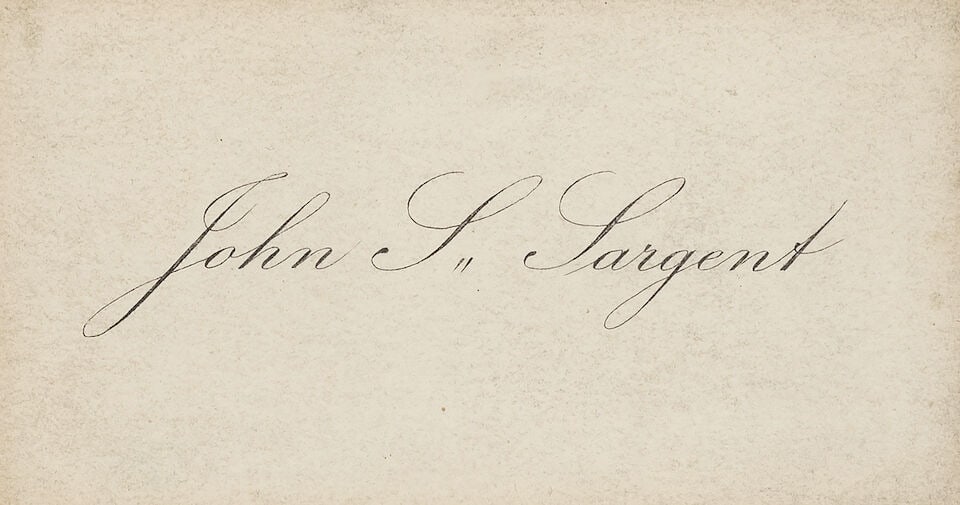 John S„ Sargent